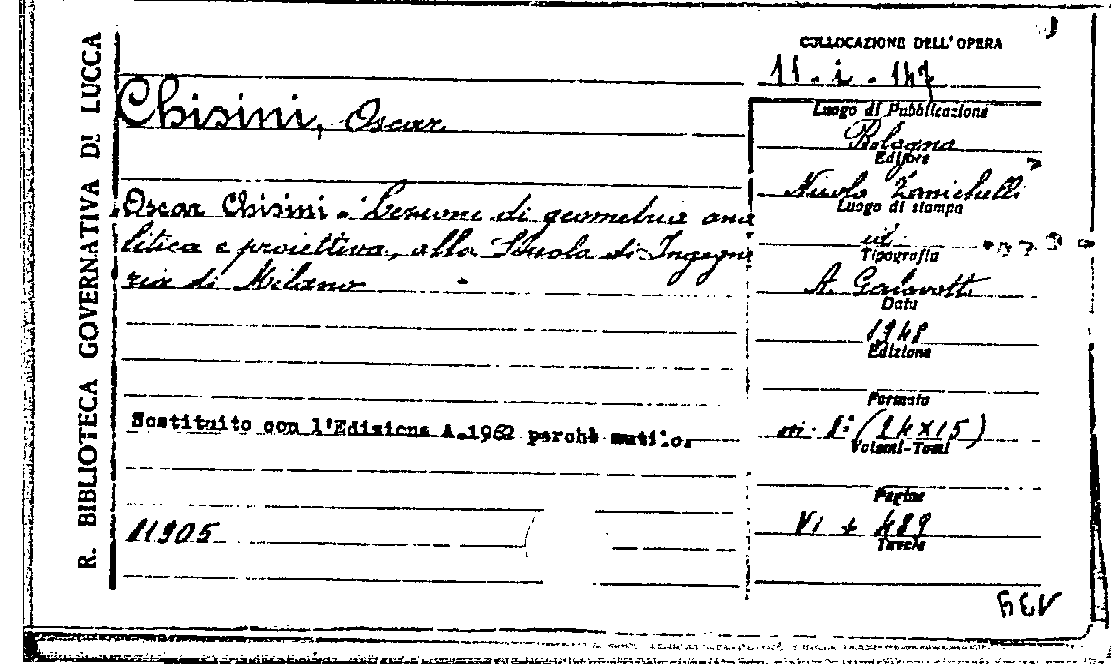 R. BIBLIOTECA GOVERNATIVA DI LUCCA
COLLOCAZIONE DELL'OPERA
11 - i - 147
Chisini, Oscar
Luogo di Pubblicazione
Bologna
Editore
Nicola Zanichelli
Luogo di stampa
id
Tipografia
A. Galavotti
Data
1948
Edizione
Formato
(24x15)
Volumi-Tomi
Pagine
VI + 489
Tavole
Oscar Chisini - Lezioni di geometria ana
litica e proiettiva, alla Scuola di Ingegne
ria di Milano
Sostituito con l'Edizione A.1962 perchè mutilo.
11905